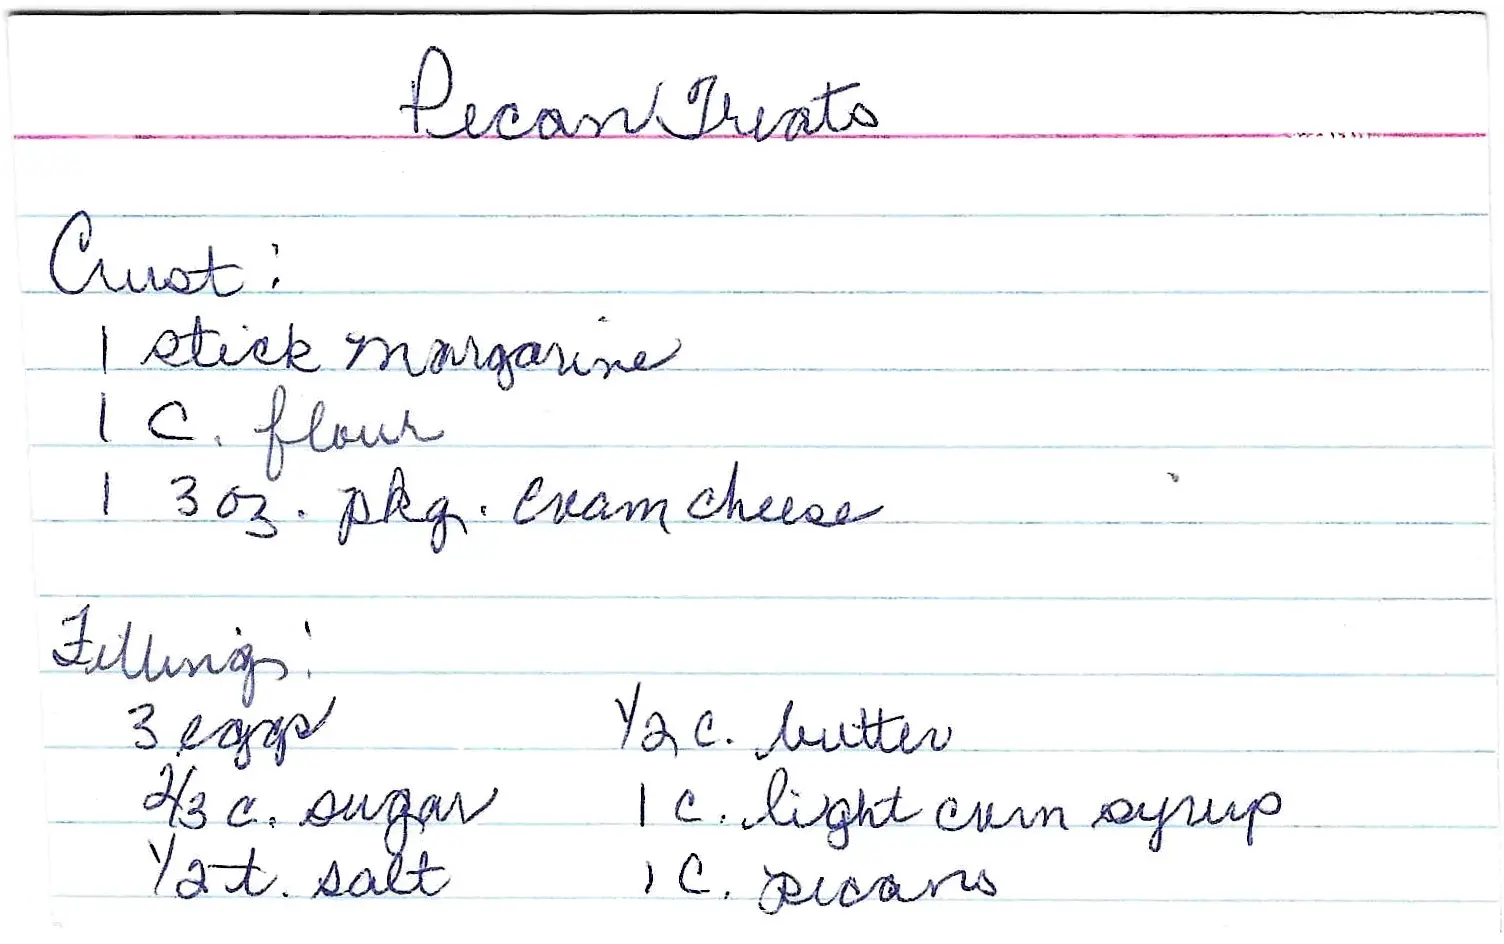 Pecan Treats
Crust:
1 stick margarine
1 C. flour
1 3 oz. pkg. cream cheese
Filling:
3 eggs 1/2 c. butter
2/3 c. sugar 1 c. light corn syrup
1/2 t. salt 1 C. pecans